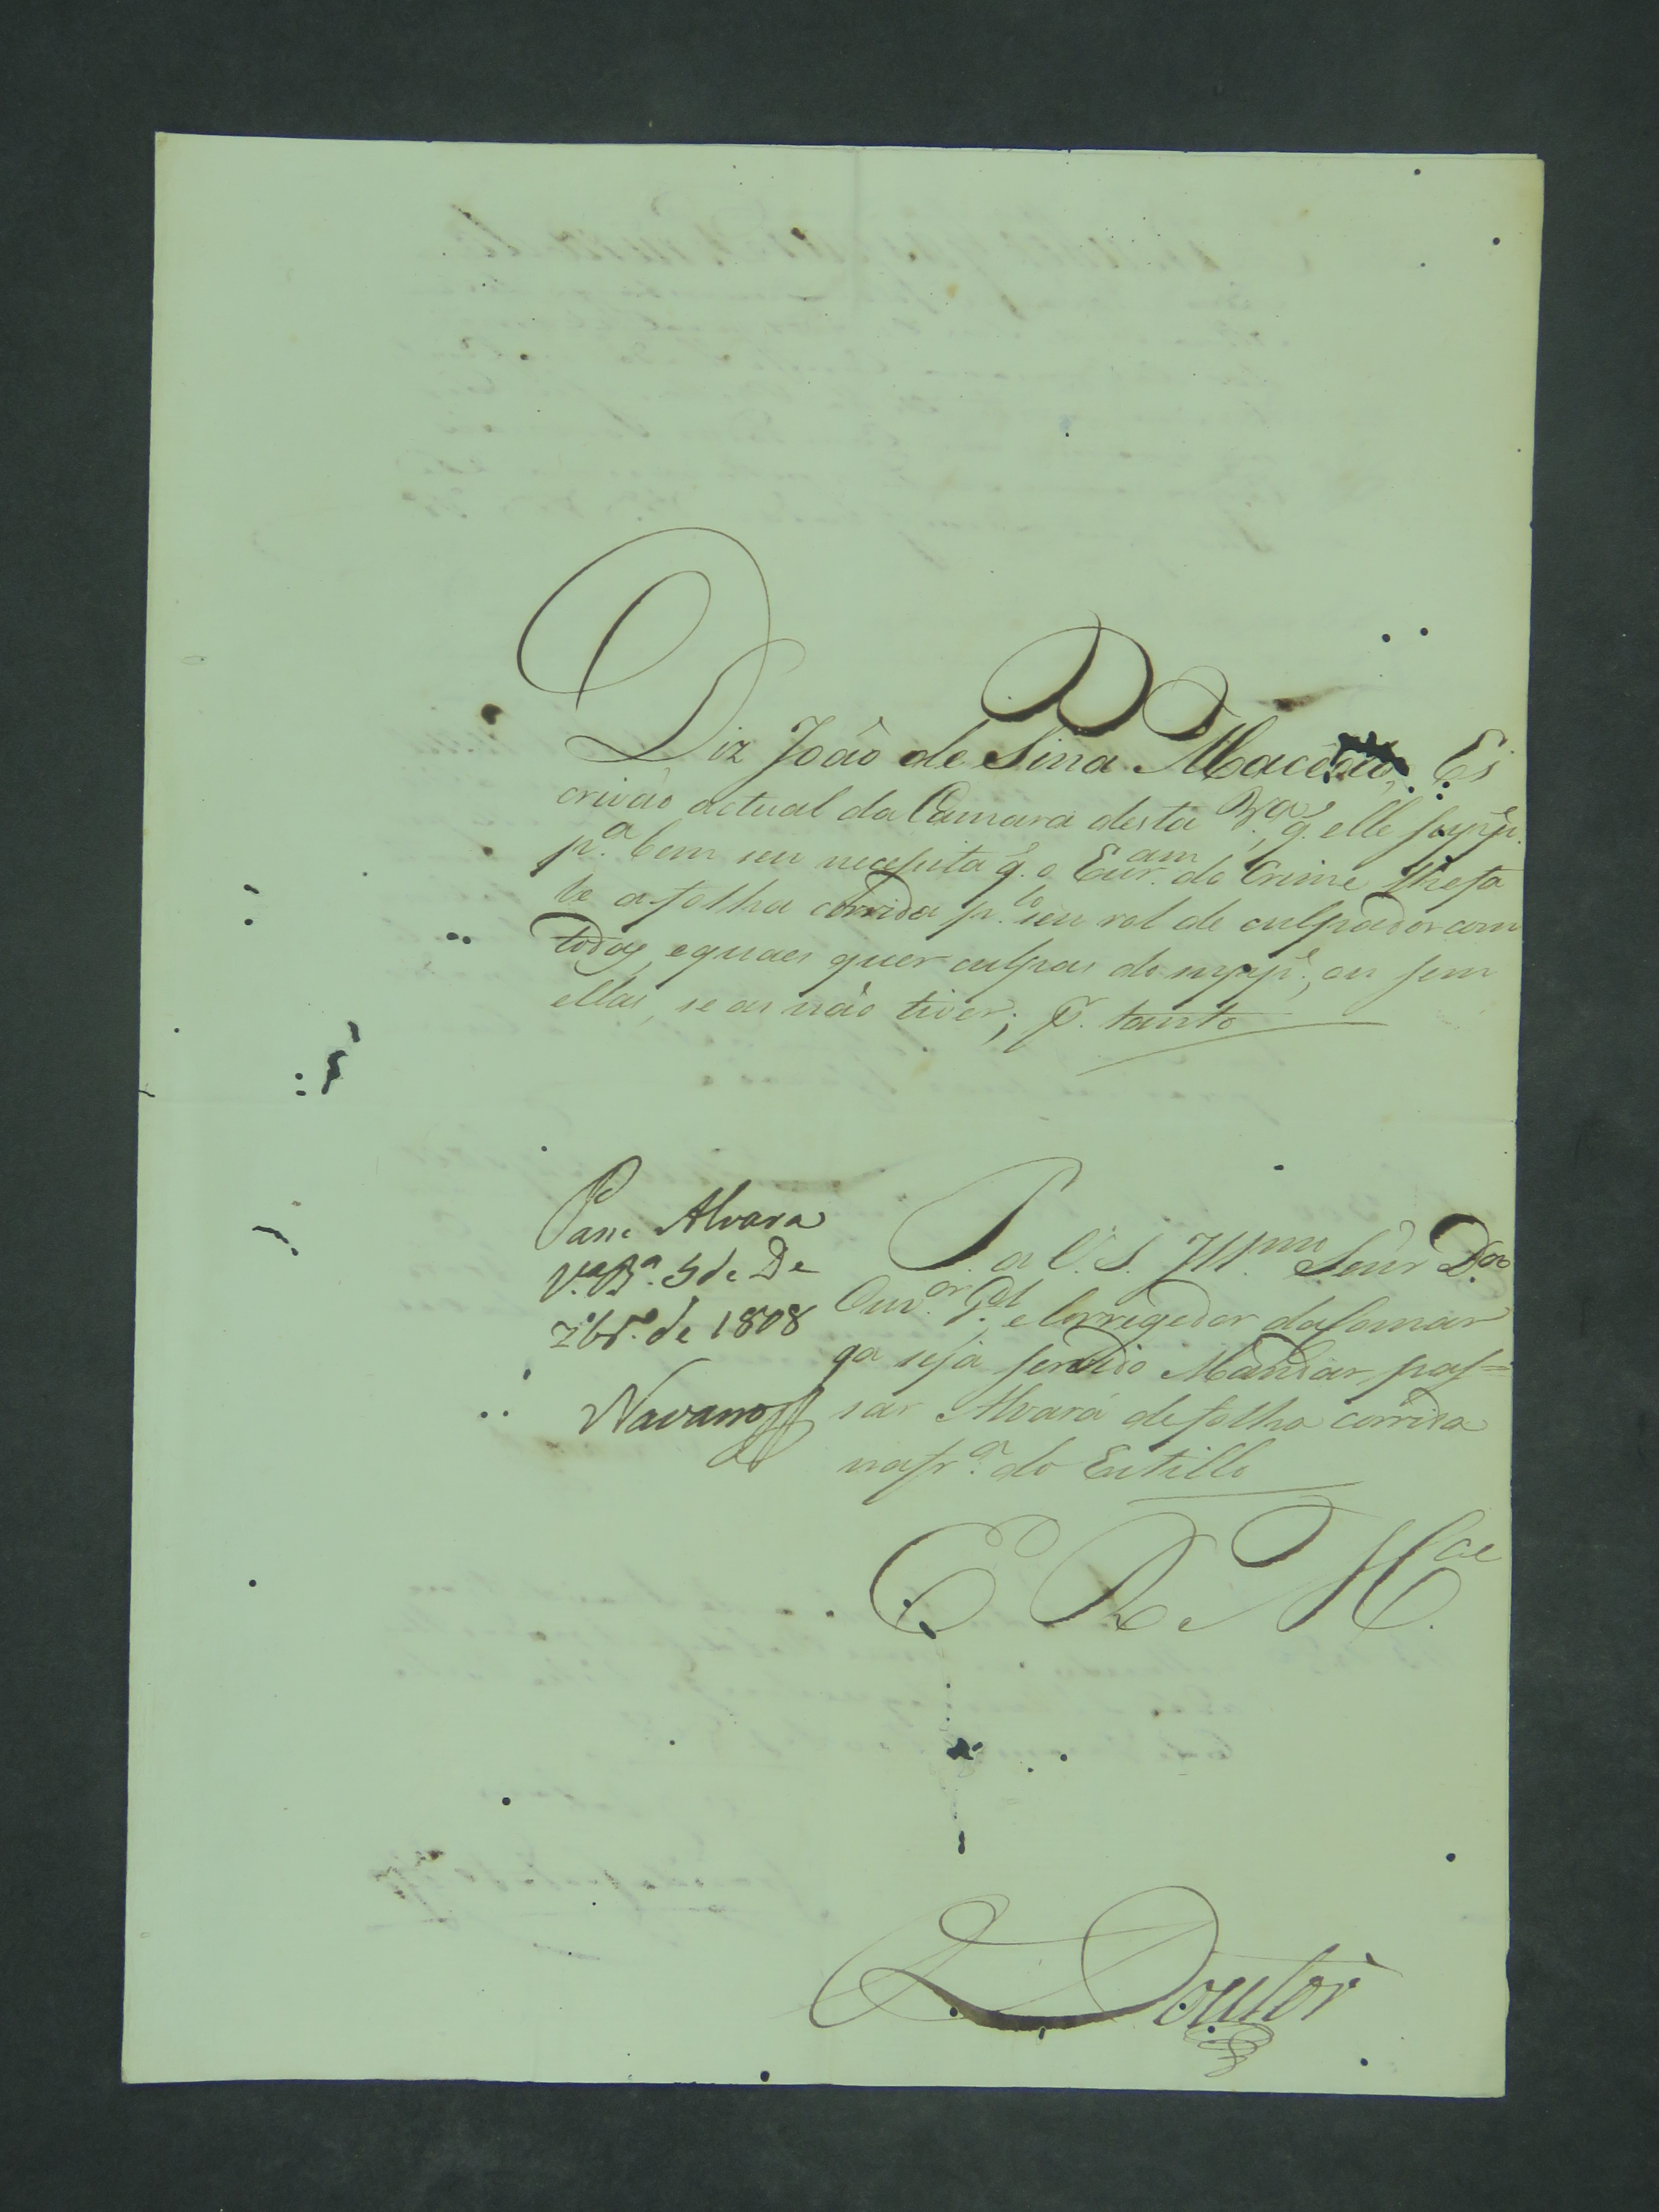 Diz João de Lima Macedo, Es
crivão actual da Camara desta V.ª, q̃. elle supp.e
p.ª bem seu necessita q̃. o Escr.am do Crime lhe fa
le a folha corrida p.lo seu rol de culpados com
todas, equaes quer culpas do supp.e, ou sem
ellas, se as não tiver; P. tanto
Passe Alvara
V.ª B.ª 5 de De
zbr.º de 1808
Navarro
P. a V. S. Ill.mo Senr D.or
Ouv.or G.al, e Corregedor da Comar
qa seja servido Mandar pas=
sar Alvará de folha corrida
na fr.ª do Estillo
E R M.ce
Doutor